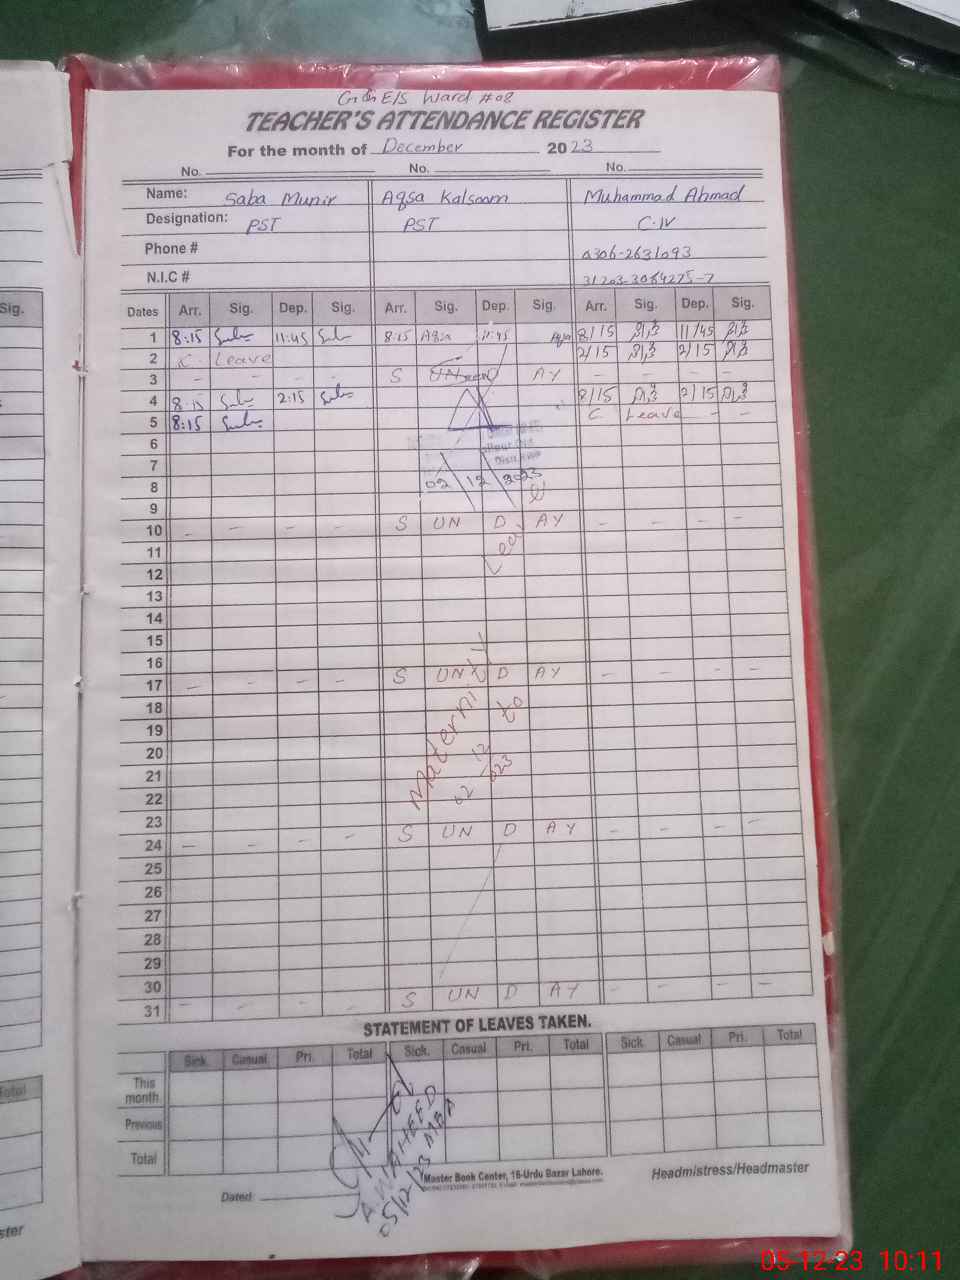 E/S Ward #08
TEACHER'S ATTENDANCE REGISTER
For the month of December 2023
No. No. No.
Name: Saba Munir Aqsa Kalsoom Muhammad Ahmad
Designation: PST PST C-IV
Phone # 0306-2631093
N.I.C # 31203-3084275-7
Dates Arr. Sig. Dep. Sig. Arr. Sig. Dep. Sig. Arr. Sig. Dep. Sig.
1 8:15 11:45 8:15 Aqsa 11:45 Aqsa 8/15 11/45
2 C. Leave 2/15 2/15
3 - - - - S UN D AY - - - -
4 8:15 2:15 8/15 2/15
5 8:15 C. Leave - -
6
7
8 02/12/2023
9
10 - - - - S UN D AY - - - -
11 Leave
12
13
14
15
16
17 - - - - S UN D AY - - - -
18 Maternity to
19
20
21 02 12 2023
22
23
24 - - - - S UN D AY - - - -
25
26
27
28
29
30
31 - - - - S UN D AY - - - -
STATEMENT OF LEAVES TAKEN.
Sick. Casual Pri. Total Sick. Casual Pri. Total Sick. Casual Pri. Total
This month
Previous
Total
A. WAHEED
05/12/23 MEA
Master Book Center, 16-Urdu Bazar Lahore.
Headmistress/Headmaster
Dated
Sig.
Total
ster
05-12-23 10:11